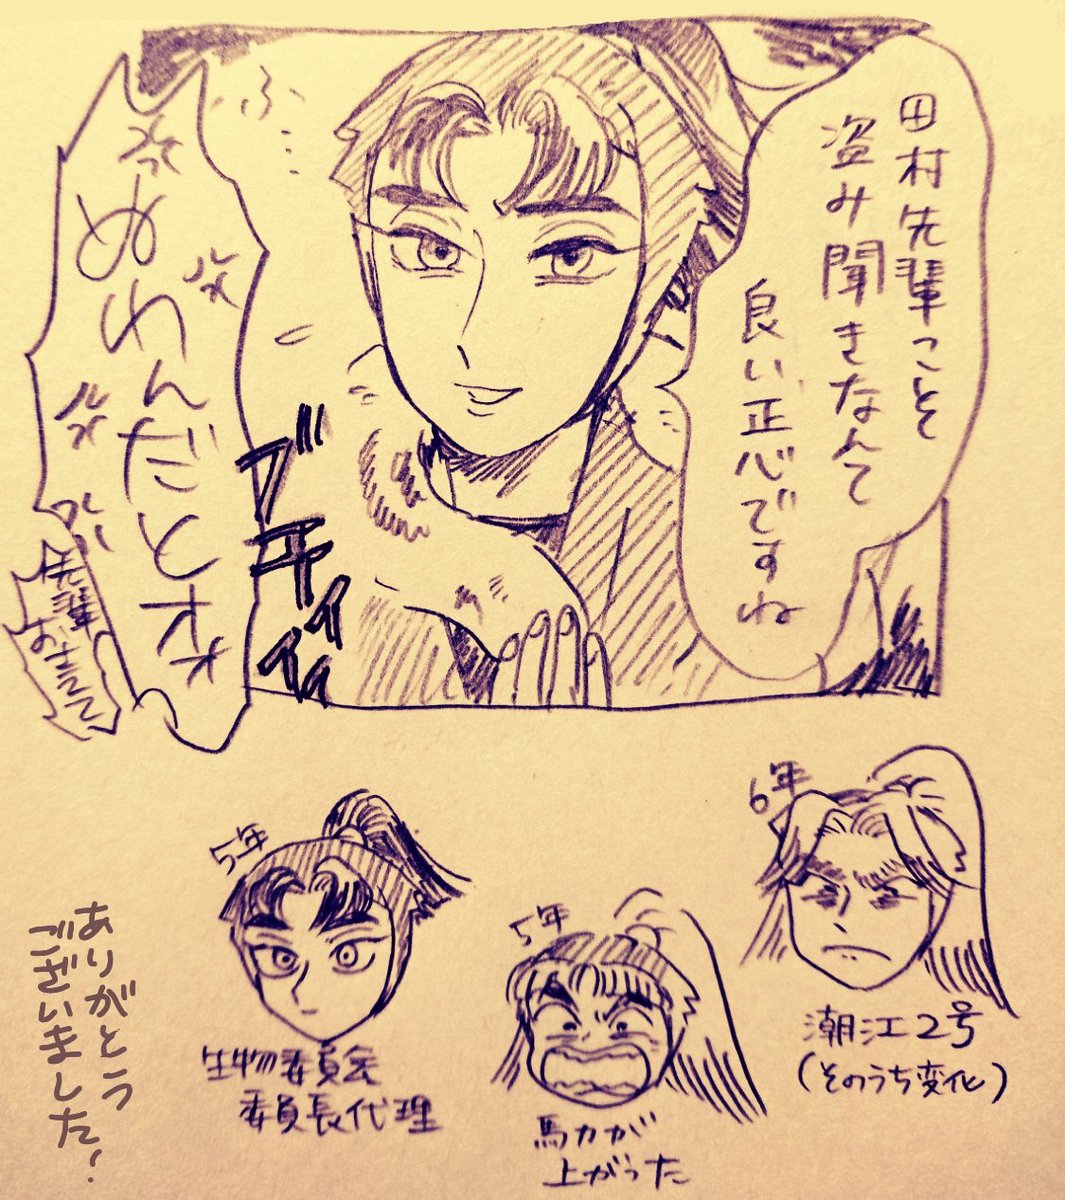 田村先輩こそ
盗み聞きなんて
良い正心ですね
ふ
ぬわんだとォ
ブキィィィ
先輩おちつ
5年
生物委員会
委員長代理
5年
馬力が
上がった
6年
潮江2号
(そのうち変化)
ありがとう
ございました!